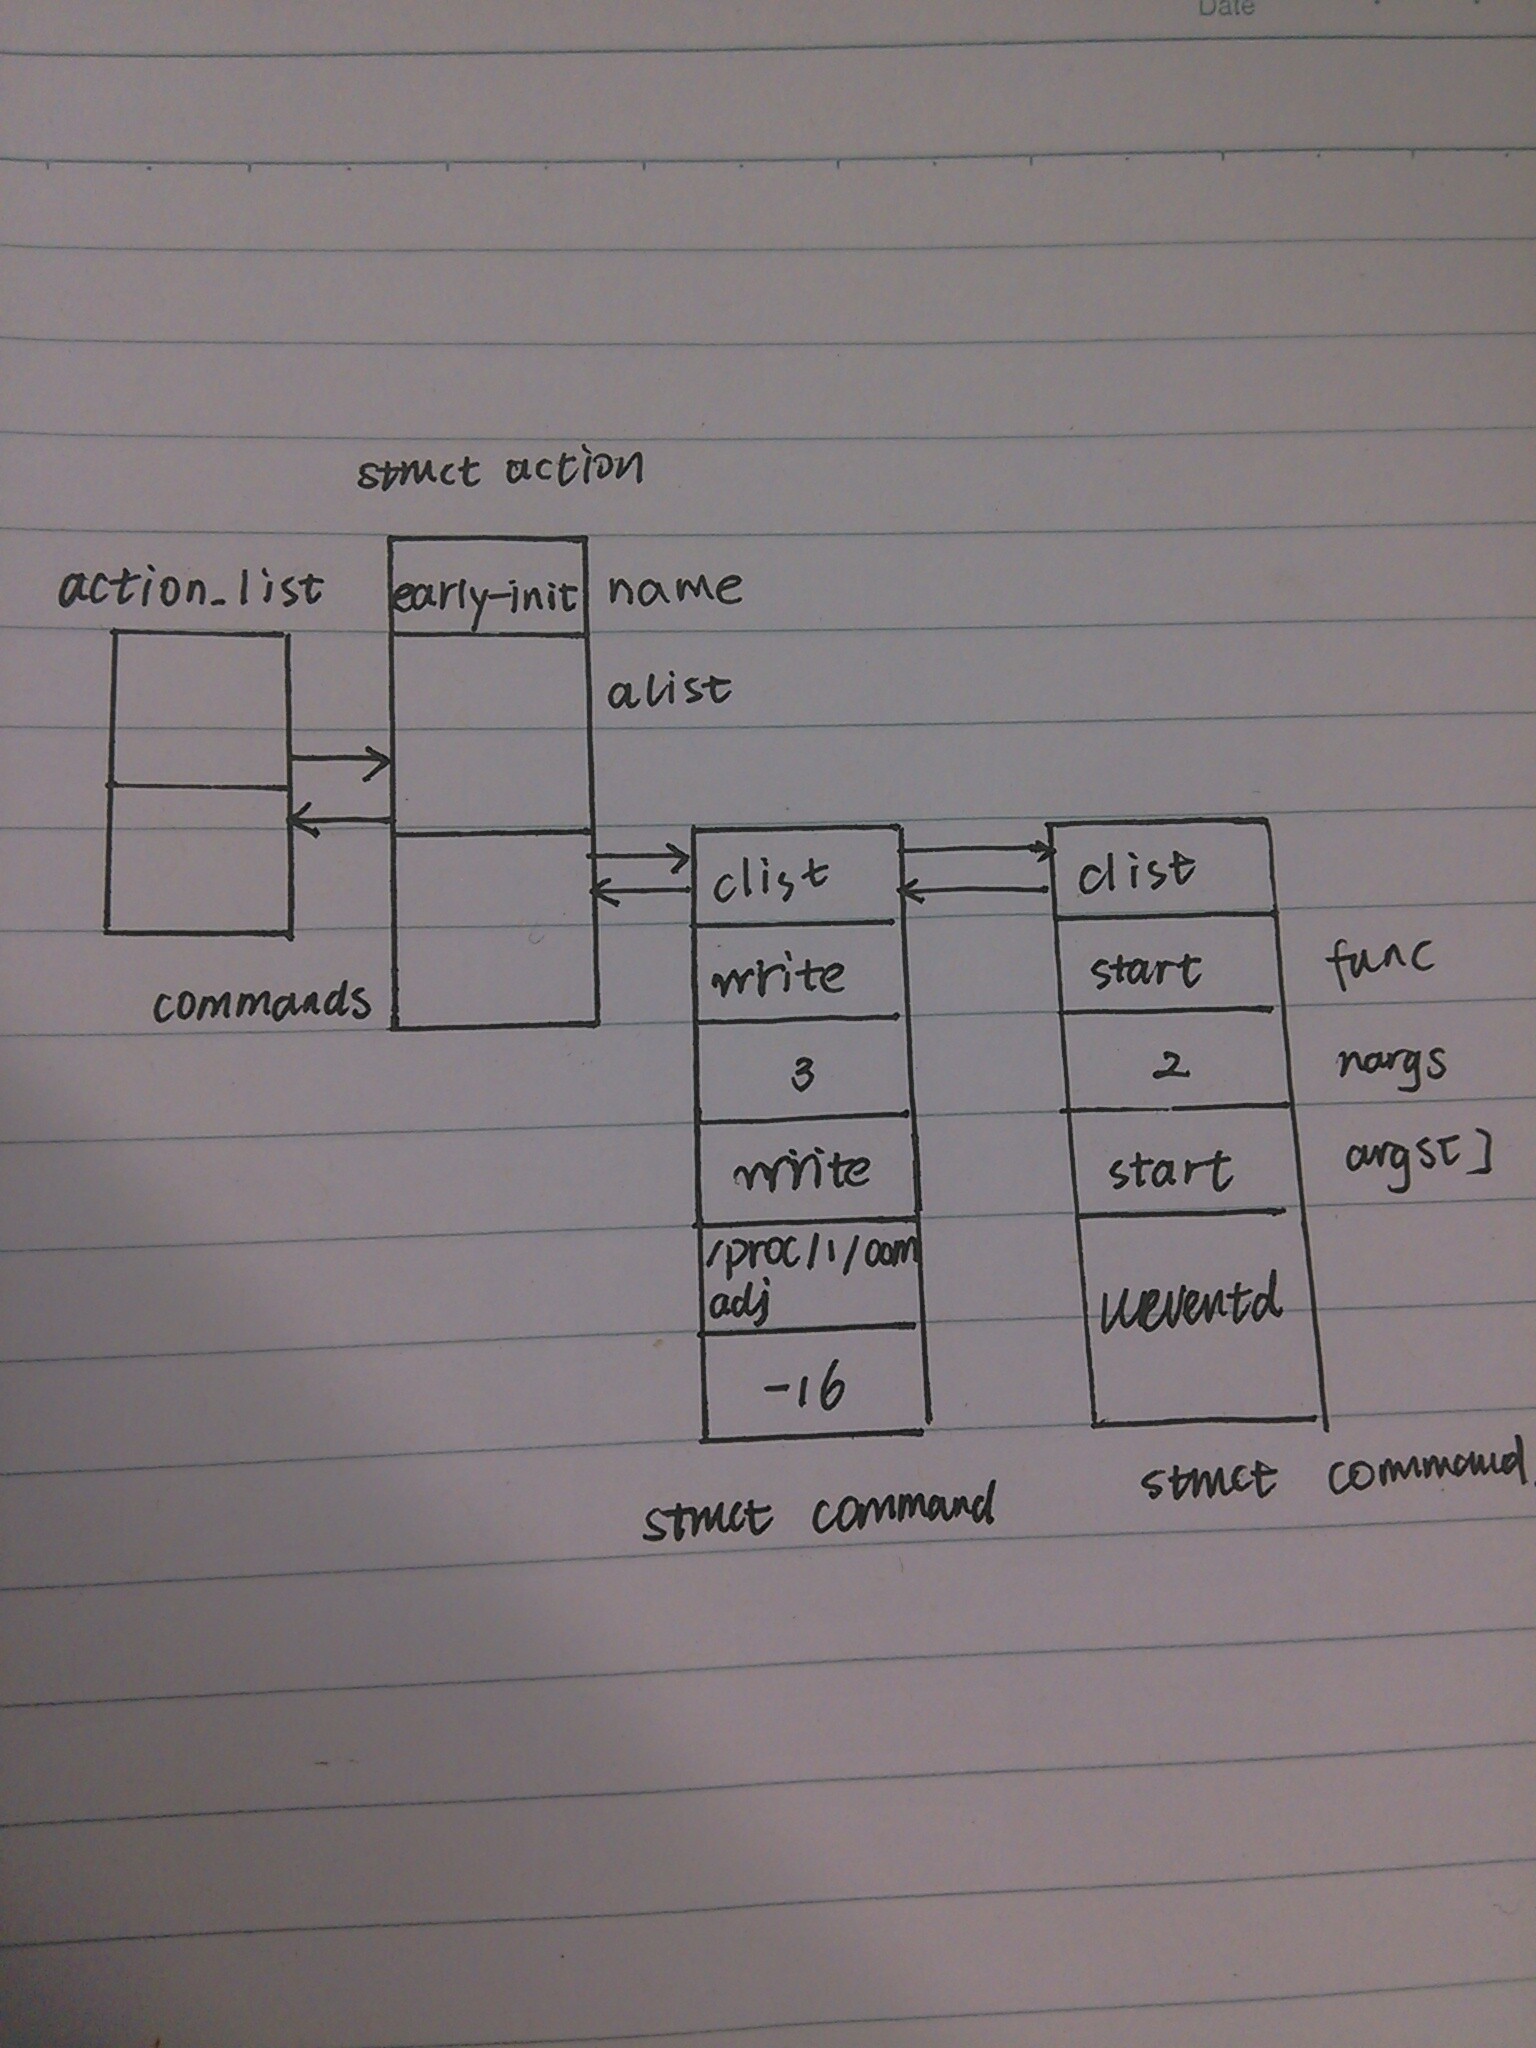 Date
struct action
action_list
early-init
name
alist
commands
clist
write
3
write
/proc/1/oom
adj
-16
struct command
clist
start
2
start
ueventd
func
nargs
args[]
struct command